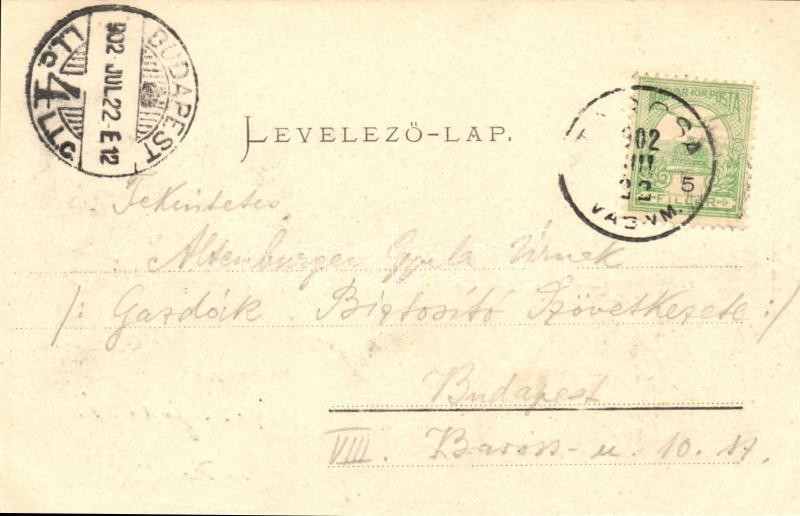 BUDAPEST
902 JUL.22. E 12
4
LEVELEZŐ-LAP.
MAGYAR·KIR·POSTA
902
22
5
FILLÉR
VAS.VM.
Tekintetes
Altenburger Gyula Úrnek
/: Gazdák Biztosító Szövetkezete :/
Budapest
VIII. Baross-u. 10. sz.